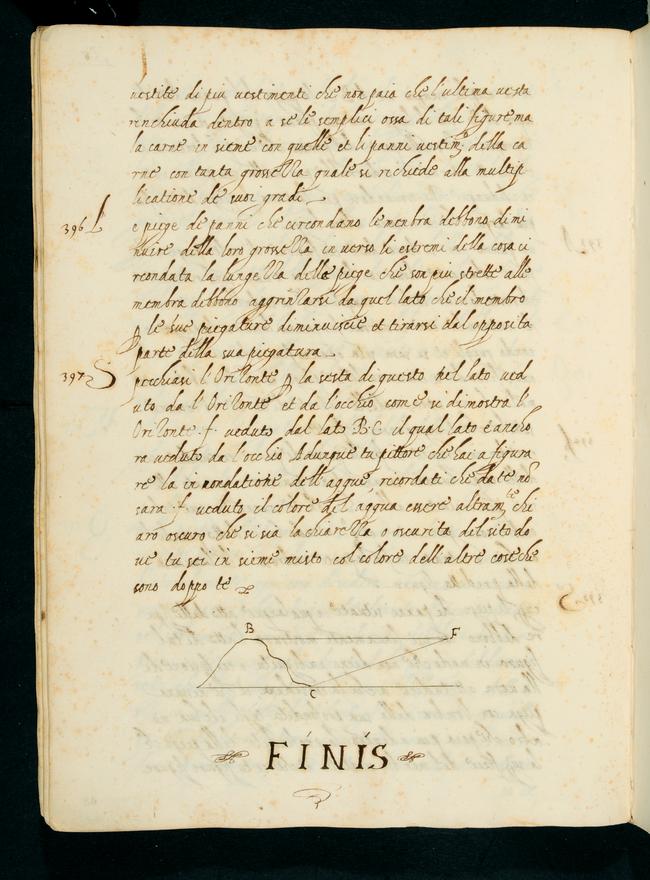 uestite di piu uestimenti che non paia che l'ultima uesta
rinchiuda dentro a se le semplici ossa di tali figure ma
la carne in sieme con quelle et li panni uestim.ti della ca
rne con tanta grossezza quale si richiede alla multip
licatione de suoi gradi
396 L
e piege de panni che circondano le menbra debbono dimi
nuire della loro grossezza in uerso li estremi della cosa ci
rcondata la lungezza delle piege che son piu strette alle
membra debbono aggrinzarsi da quel lato che il membro
p le sue piegature diminuiscie et tirarsi dal opposita
parte della sua piegatura
397 S
pecchiasi l'Orizonte p la sesta di questo nel lato ued
uto da l'Orizonte et da l'occhio come si dimostra l'
Orizonte .f. ueduto dal lato B.C il qual lato è ancho
ra ueduto da l'occhio Adunque tu pittore che hai a figura
re la in nondatione dell'aqque ricordati che da te nõ
sara .f. ueduto il colore del'aqqua essere altram.te chi
aro oscuro che si sia la chiarezza o oscurita del sito do
ue tu sei in sieme misto col colore dell'altre cose che
sono doppo te
B F
C
FINIS